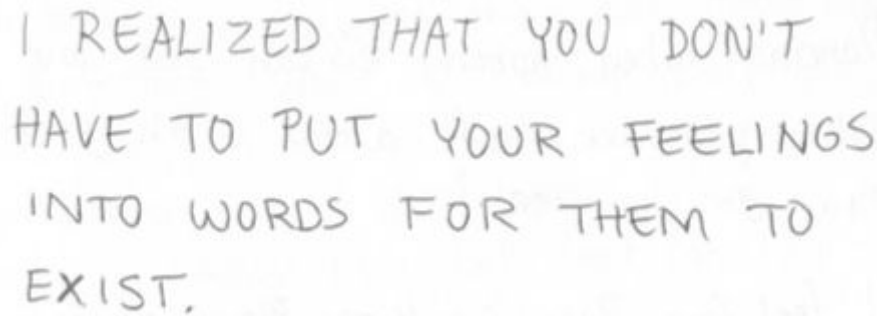 I REALIZED THAT YOU DON'T
HAVE TO PUT YOUR FEELINGS
INTO WORDS FOR THEM TO
EXIST.